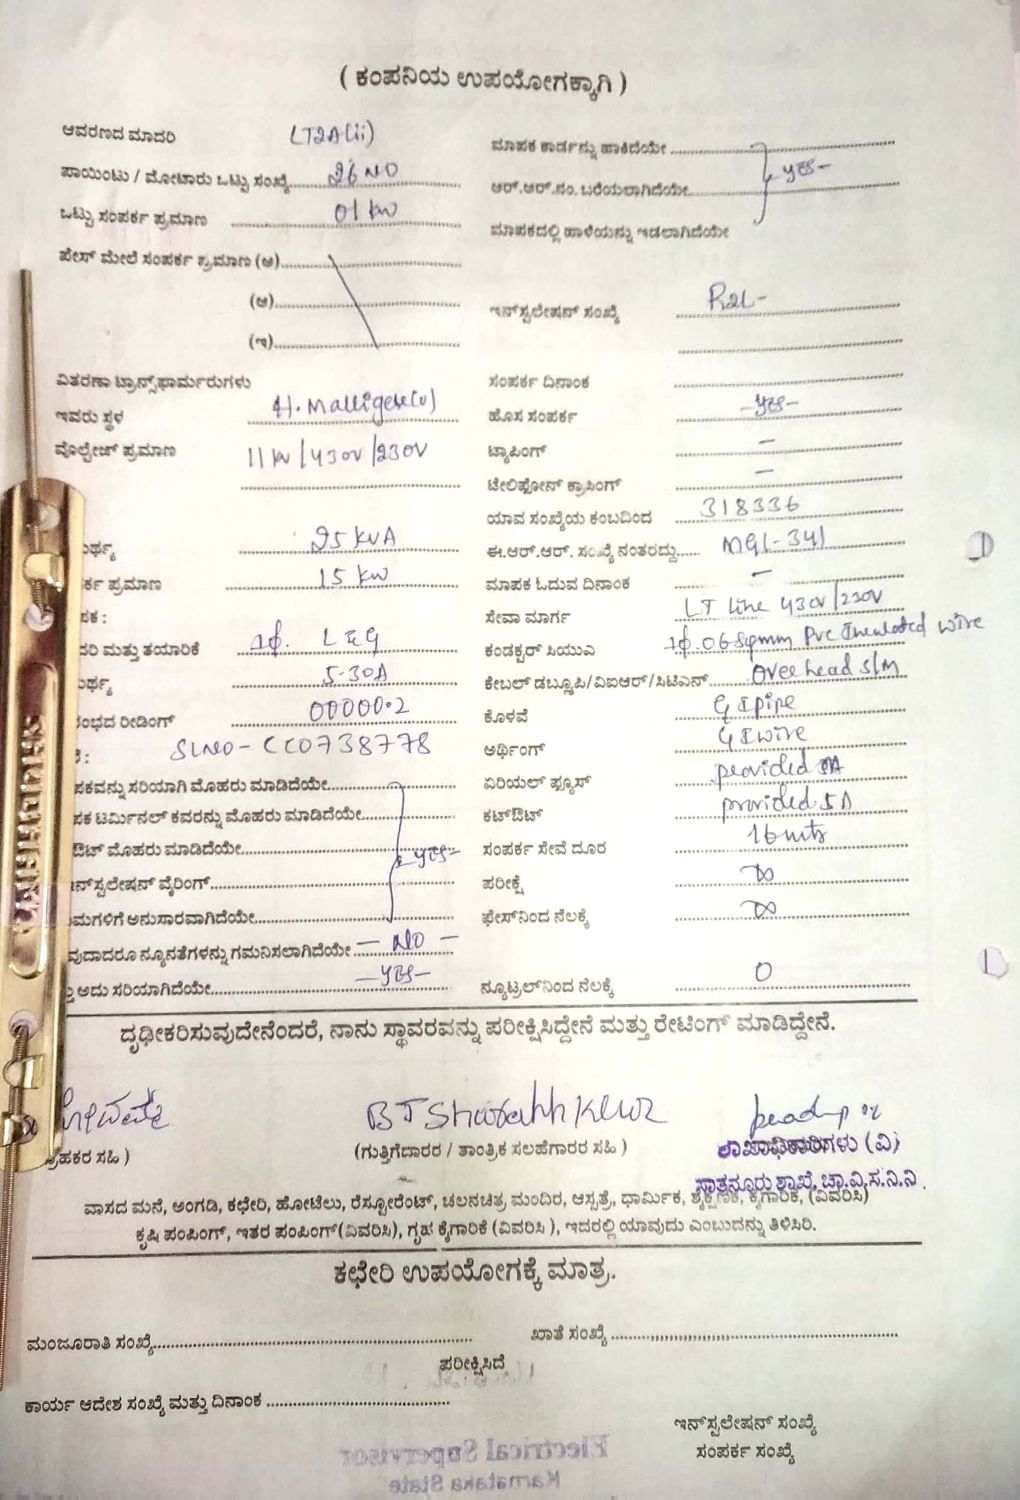 ( ಕಂಪನಿಯ ಉಪಯೋಗಕ್ಕಾಗಿ )
ಆವರಣದ ಮಾದರಿ LT2A(ii)
ಪಾಯಿಂಟು / ಮೋಟಾರು ಒಟ್ಟು ಸಂಖ್ಯೆ 26 NO
ಒಟ್ಟು ಸಂಪರ್ಕ ಪ್ರಮಾಣ 01 KW
ಪೇಸ್ ಮೇಲೆ ಸಂಪರ್ಕ ಪ್ರಮಾಣ (ಅ)
(ಆ)
(ಇ)
ವಿತರಣಾ ಟ್ರಾನ್ಸ್‌ಫಾರ್ಮರುಗಳು
ಇವರು ಸ್ಥಳ
ವೊಲ್ಟೇಜ್ ಪ್ರಮಾಣ 11 KV / 430V / 230V
ರ್ಥ್ಯ 25 KVA
ರ್ಕ ಪ್ರಮಾಣ 15 KW
ಪಕ :
ದರಿ ಮತ್ತು ತಯಾರಿಕೆ 1ф. L & G
ರ್ಥ್ಯ 5-30A
ಂಭದ ರೀಡಿಂಗ್ 00000.2
: SLNO - CC0738778
ಪಕವನ್ನು ಸರಿಯಾಗಿ ಮೊಹರು ಮಾಡಿದೆಯೇ
ಪಕ ಟರ್ಮಿನಲ್ ಕವರನ್ನು ಮೊಹರು ಮಾಡಿದೆಯೇ
ಔಟ್ ಮೊಹರು ಮಾಡಿದೆಯೇ - yes -
ನ್‌ಸ್ಟಲೇಷನ್ ವೈರಿಂಗ್
ಮಗಳಿಗೆ ಅನುಸಾರವಾಗಿದೆಯೇ
ವುದಾದರೂ ನ್ಯೂನತೆಗಳನ್ನು ಗಮನಿಸಲಾಗಿದೆಯೇ - NO -
ತು ಅದು ಸರಿಯಾಗಿದೆಯೇ - yes -
ಮಾಪಕ ಕಾರ್ಡನ್ನು ಹಾಕಿದೆಯೇ
ಆರ್.ಆರ್.ನಂ. ಬರೆಯಲಾಗಿದೆಯೇ - yes -
ಮಾಪಕದಲ್ಲಿ ಹಾಳೆಯನ್ನು ಇಡಲಾಗಿದೆಯೇ
ಇನ್‌ಸ್ಟಲೇಷನ್ ಸಂಖ್ಯೆ
ಸಂಪರ್ಕ ದಿನಾಂಕ
ಹೊಸ ಸಂಪರ್ಕ - yes -
ಟ್ಯಾಪಿಂಗ್ -
ಟೇಲಿಫೋನ್ ಕ್ರಾಸಿಂಗ್ -
ಯಾವ ಸಂಖ್ಯೆಯ ಕಂಬದಿಂದ 318336
ಈ.ಆರ್.ಆರ್. ಸಂಖ್ಯೆ ನಂತರದ್ದು MGL-341
ಮಾಪಕ ಓದುವ ದಿನಾಂಕ -
ಸೇವಾ ಮಾರ್ಗ LT Line 430V/230V
ಕಂಡಕ್ಟರ್ ಸಿಯುಎ 1ф. 06 Sqmm PVC Insulated wire
ಕೇಬಲ್ ಡಬ್ಲ್ಯೂಪಿ/ವಿಐಆರ್/ಸಿಟಿಎಸ್ Over head S/M
ಕೊಳವೆ GI pipe
ಅರ್ಥಿಂಗ್ GI wire
ಏರಿಯಲ್ ಫ್ಯೂಸ್ provided 5A
ಕಟ್‌ಔಟ್ provided 5A
ಸಂಪರ್ಕ ಸೇವೆ ದೂರ 16 mts
ಪರೀಕ್ಷೆ ∞
ಫೇಸ್‌ನಿಂದ ನೆಲಕ್ಕೆ ∞
ನ್ಯೂಟ್ರಲ್‌ನಿಂದ ನೆಲಕ್ಕೆ 0
ದೃಢೀಕರಿಸುವುದೇನೆಂದರೆ, ನಾನು ಸ್ಥಾವರವನ್ನು ಪರೀಕ್ಷಿಸಿದ್ದೇನೆ ಮತ್ತು ರೇಟಿಂಗ್ ಮಾಡಿದ್ದೇನೆ.
ರಾಹಕರ ಸಹಿ )
(ಗುತ್ತಿಗೆದಾರರ / ತಾಂತ್ರಿಕ ಸಲಹೆಗಾರರ ಸಹಿ )
ಶಾಖಾಧಿಕಾರಿಗಳು (ವಿ)
ಸಾತನೂರು ಶಾಖೆ, ಚಾ.ವಿ.ಸ.ನಿ.ನಿ.
ವಾಸದ ಮನೆ, ಅಂಗಡಿ, ಕಛೇರಿ, ಹೋಟೆಲು, ರೆಸ್ಟೋರೆಂಟ್, ಚಲನಚಿತ್ರ ಮಂದಿರ, ಆಸ್ಪತ್ರೆ, ಧಾರ್ಮಿಕ, ಶೈಕ್ಷಣಿಕ, ಕೈಗಾರಿಕೆ, (ವಿವರಿಸಿ)
ಕೃಷಿ ಪಂಪಿಂಗ್, ಇತರ ಪಂಪಿಂಗ್(ವಿವರಿಸಿ), ಗೃಹ ಕೈಗಾರಿಕೆ (ವಿವರಿಸಿ ), ಇದರಲ್ಲಿ ಯಾವುದು ಎಂಬುದನ್ನು ತಿಳಿಸಿರಿ.
ಕಛೇರಿ ಉಪಯೋಗಕ್ಕೆ ಮಾತ್ರ.
ಮಂಜೂರಾತಿ ಸಂಖ್ಯೆ
ಖಾತೆ ಸಂಖ್ಯೆ
ಪರೀಕ್ಷಿಸಿದೆ
ಕಾರ್ಯ ಆದೇಶ ಸಂಖ್ಯೆ ಮತ್ತು ದಿನಾಂಕ
ಇನ್‌ಸ್ಟಲೇಷನ್ ಸಂಖ್ಯೆ
ಸಂಪರ್ಕ ಸಂಖ್ಯೆ
Electrical Supervisor
Karnataka State